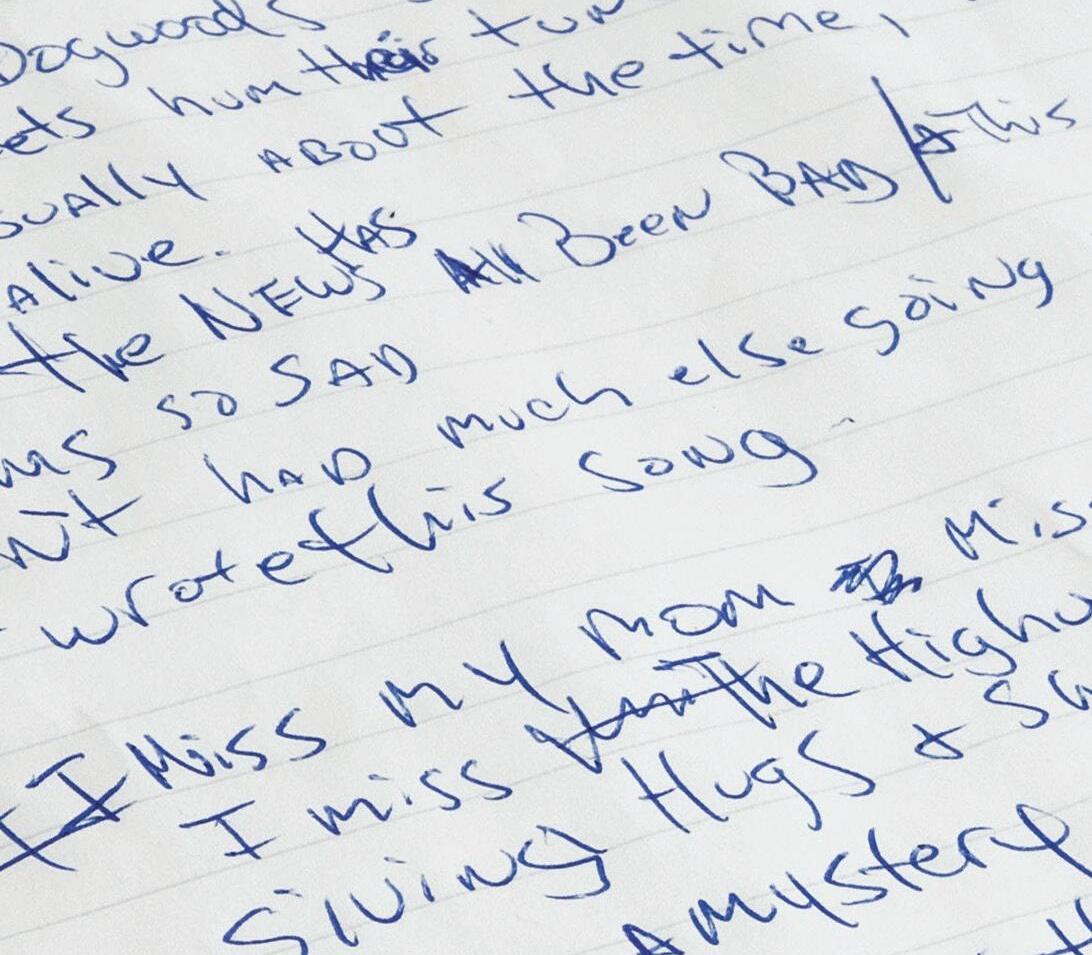 Dogwoods
ets hum their tun
sually ABOUT the time,
alive.
the NEWS HAS All Been BAD this
ms so SAD
n't hAD much else going
wrote this song
I Miss my mom Mis
I miss The Highw
Giving Hugs & Sw
A mystery